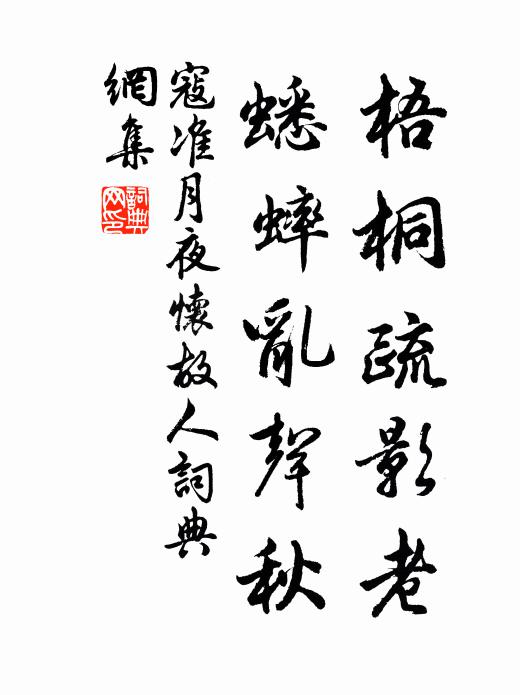 梧桐疏影老
蟋蟀亂聲秋
寇準月夜懷故人詞典
網集
詞典网印